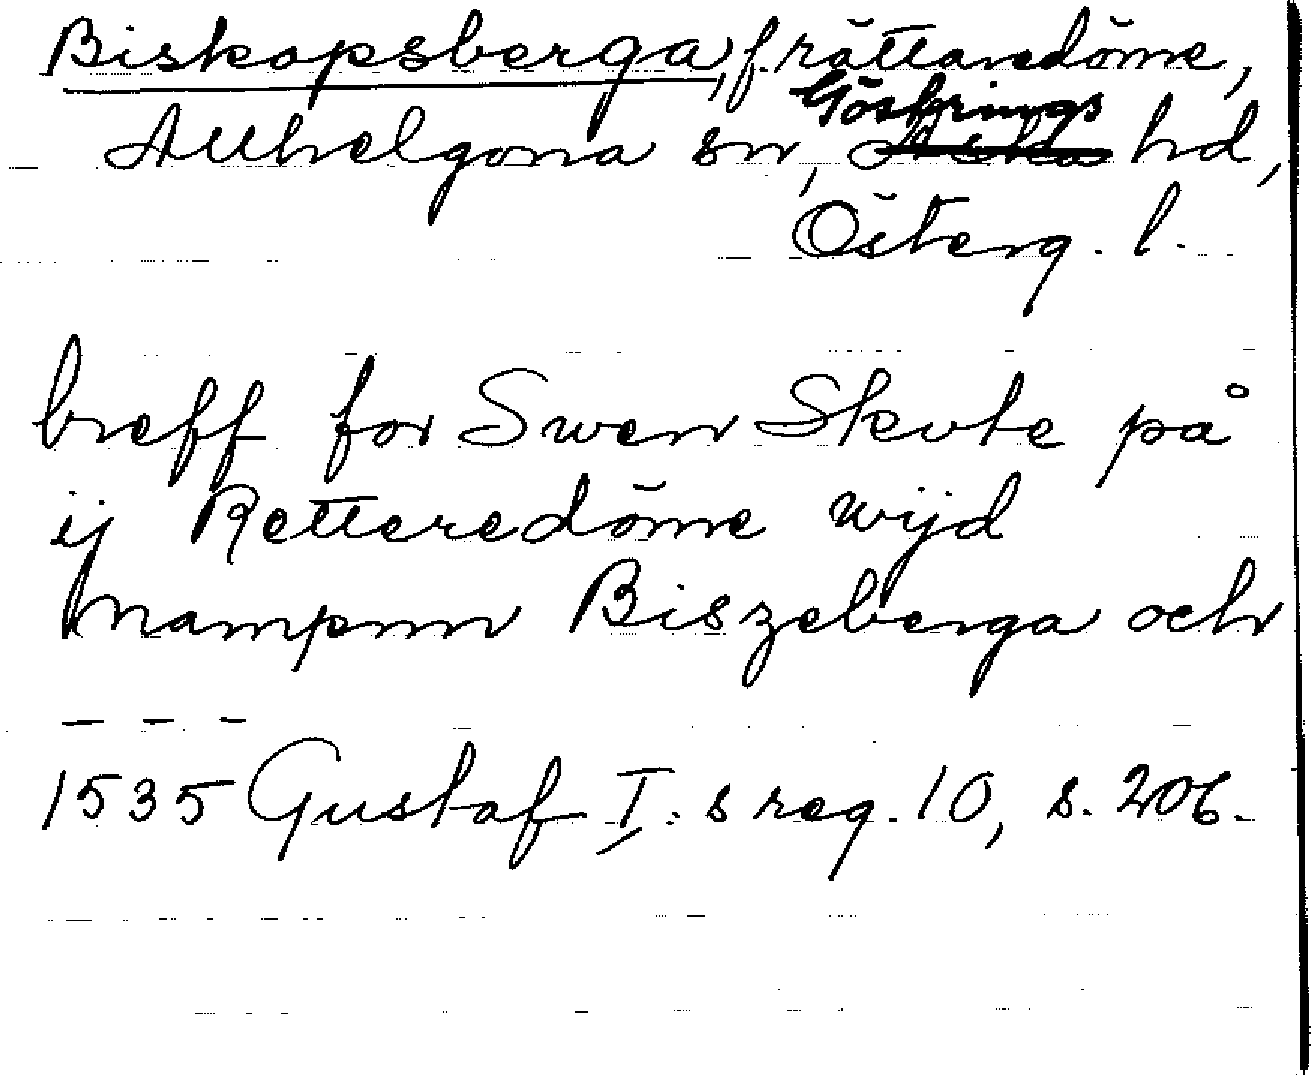 Biskopsberga, f. rättaredöme,
Allhelgona sn, Göstrings hd,
Österg. l.
breff for Swen Skute på
ij Retteredöme wijd
nampnn Biszeberga och
- - -
1535 Gustaf I:s reg. 10, s. 206.